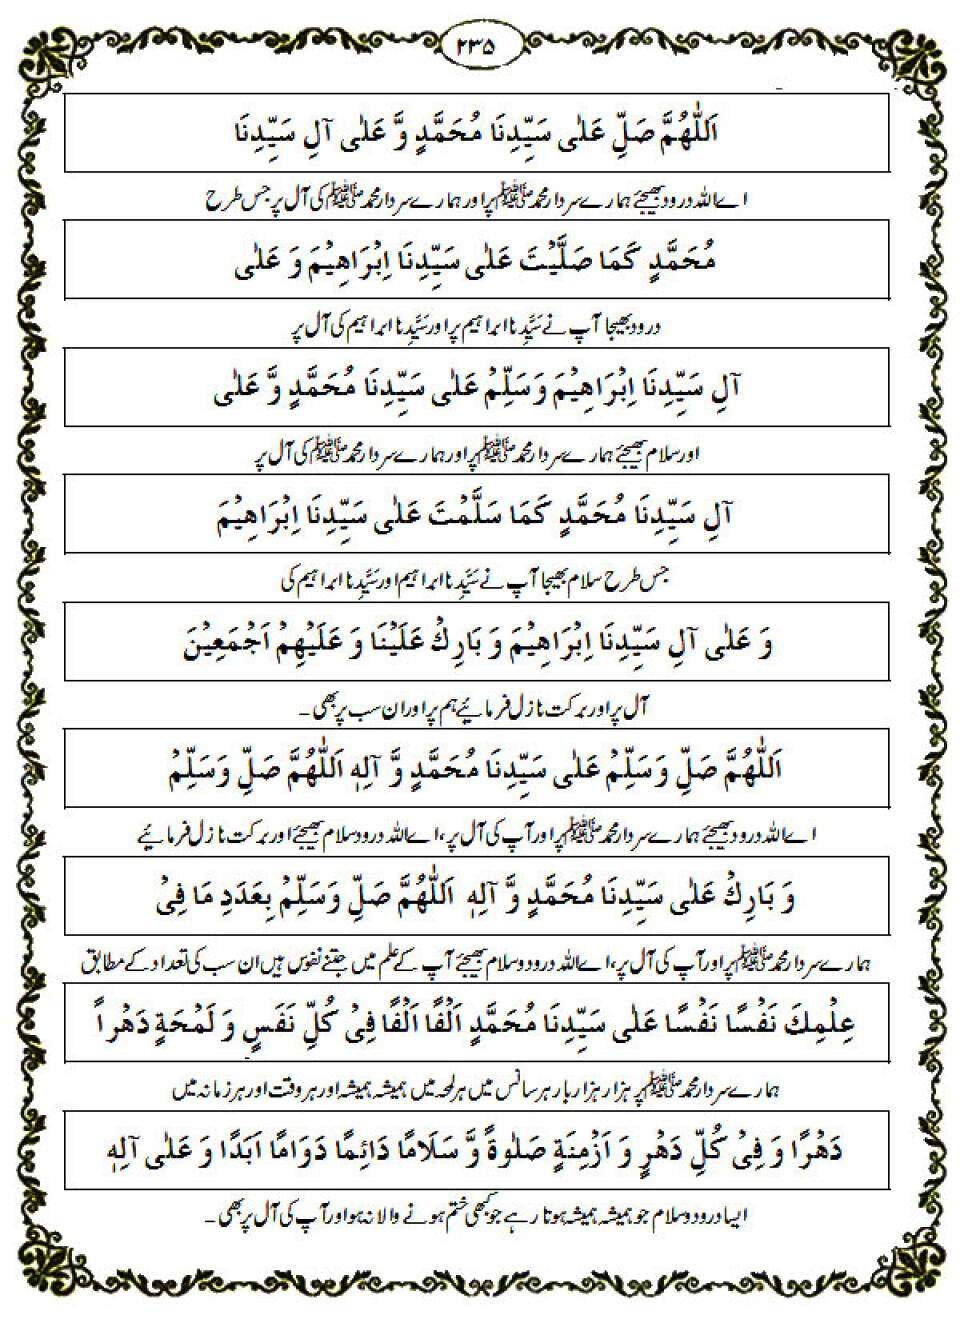 ۲۳۵
اَللّٰهُمَّ صَلِّ عَلٰى سَيِّدِنَا مُحَمَّدٍ وَّ عَلٰى آلِ سَيِّدِنَا
اے اللہ درود بھیجئے ہمارے سردار محمد ﷺ پر اور ہمارے سردار محمد ﷺ کی آل پر جس طرح
مُحَمَّدٍ كَمَا صَلَّيْتَ عَلٰى سَيِّدِنَا اِبْرَاهِيْمَ وَ عَلٰى
درود بھیجا آپ نے سَیِّدِنا ابراہیم پر اور سَیِّدِنا ابراہیم کی آل پر
آلِ سَيِّدِنَا اِبْرَاهِيْمَ وَسَلِّمْ عَلٰى سَيِّدِنَا مُحَمَّدٍ وَّ عَلٰى
اور سلام بھیجئے ہمارے سردار محمد ﷺ پر اور ہمارے سردار محمد ﷺ کی آل پر
آلِ سَيِّدِنَا مُحَمَّدٍ كَمَا سَلَّمْتَ عَلٰى سَيِّدِنَا اِبْرَاهِيْمَ
جس طرح سلام بھیجا آپ نے سَیِّدِنا ابراہیم اور سَیِّدِنا ابراہیم کی
وَ عَلٰى آلِ سَيِّدِنَا اِبْرَاهِيْمَ وَ بَارِكْ عَلَيْنَا وَ عَلَيْهِمْ اَجْمَعِيْنَ
آل پر اور برکت نازل فرمائیے ہم پر اور ان سب پر بھی ۔
اَللّٰهُمَّ صَلِّ وَسَلِّمْ عَلٰى سَيِّدِنَا مُحَمَّدٍ وَّ آلِهٖ اَللّٰهُمَّ صَلِّ وَسَلِّمْ
اے اللہ درود بھیجئے ہمارے سردار محمد ﷺ پر اور آپ کی آل پر، اے اللہ درود سلام بھیجئے اور برکت نازل فرمائیے
وَ بَارِكْ عَلٰى سَيِّدِنَا مُحَمَّدٍ وَّ آلِهٖ اَللّٰهُمَّ صَلِّ وَسَلِّمْ بِعَدَدِ مَا فِىْ
ہمارے سردار محمد ﷺ پر اور آپ کی آل پر، اے اللہ درود و سلام بھیجئے آپ کے علم میں جتنے نفوس ہیں ان سب کی تعداد کے مطابق
عِلْمِكَ نَفْسًا نَفْسًا عَلٰى سَيِّدِنَا مُحَمَّدٍ اَلْفًا اَلْفًا فِىْ كُلِّ نَفَسٍ وَ لَمْحَةٍ دَهْراً
ہمارے سردار محمد ﷺ پر ہزار ہزار بار ہر سانس میں ہر لمحہ میں ہمیشہ ہمیشہ اور ہر وقت اور ہر زمانہ میں
دَهْرًا وَ فِىْ كُلِّ دَهْرٍ وَ اَزْمِنَةٍ صَلٰوةً وَّ سَلَامًا دَائِمًا دَوَامًا اَبَدًا وَ عَلٰى آلِهٖ
ایسا درود و سلام جو ہمیشہ ہمیشہ ہوتا رہے جو کبھی ختم ہونے والا نہ ہو اور آپ کی آل پر بھی ۔